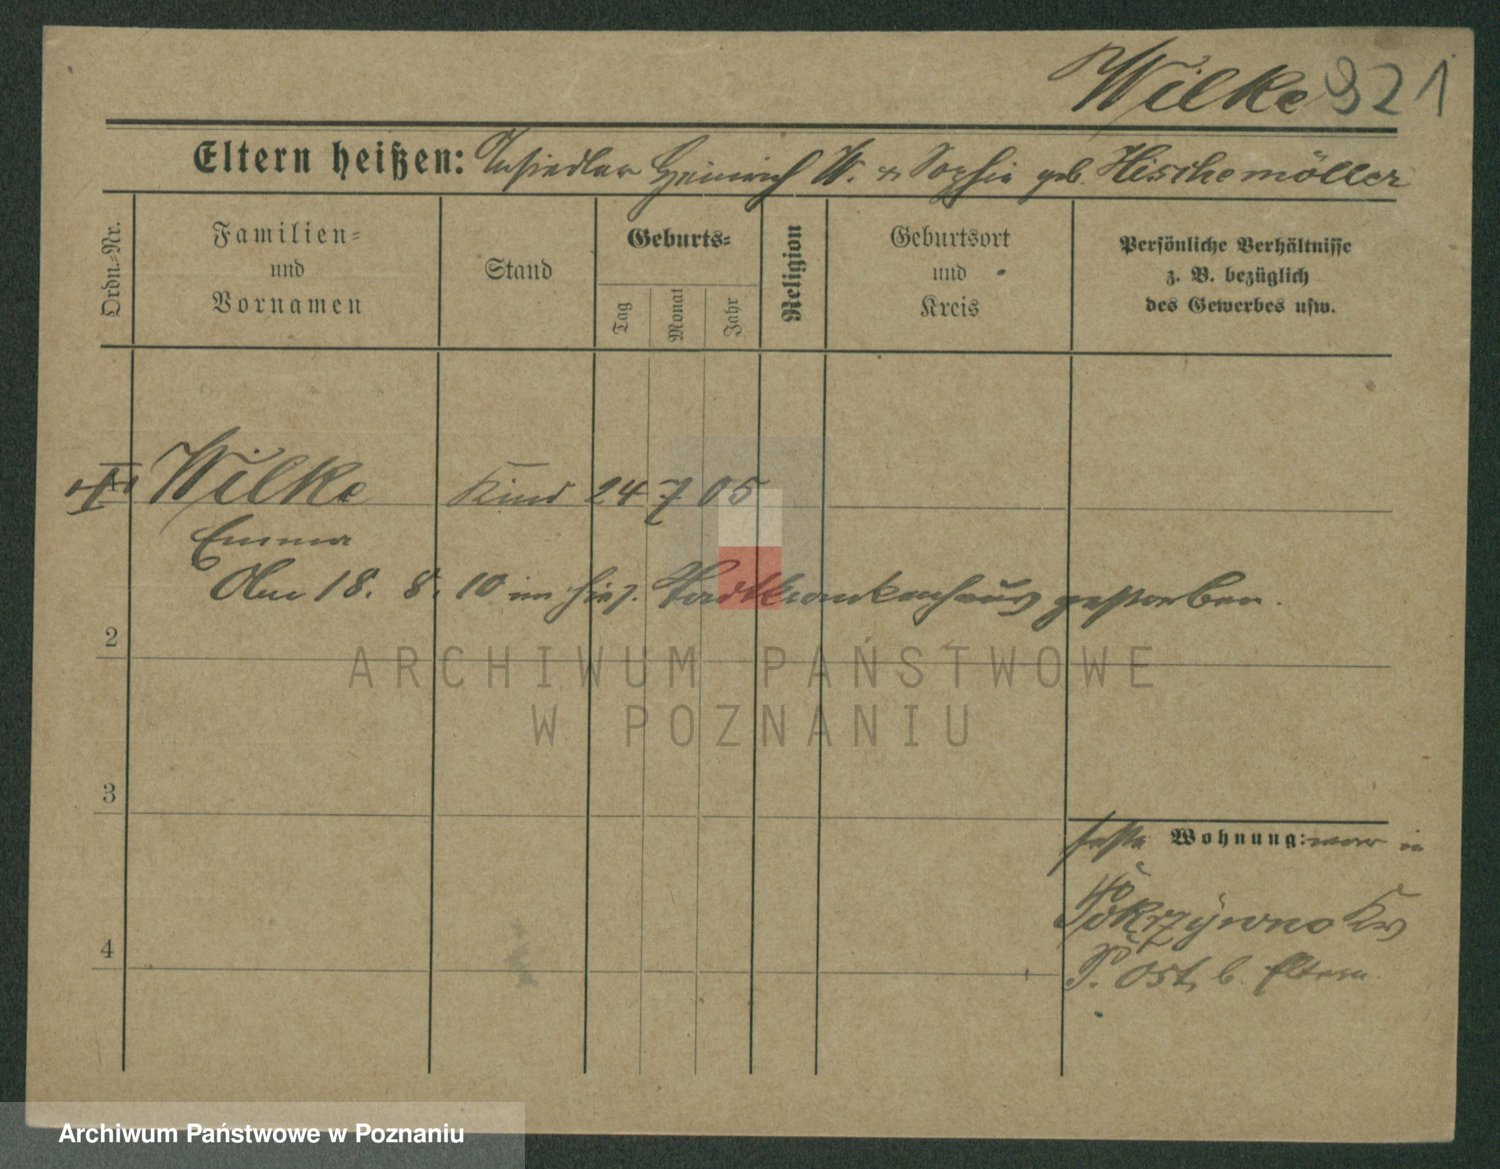 Wilke 921
Eltern heißen: Ansiedler Heinrich W. u. Sophie geb. Hischemöller
Ordn.-Nr.
Familien- und Vornamen
Stand
Geburts-
Tag
Monat
Jahr
Religion
Geburtsort und Kreis
Persönliche Verhältnisse
z. B. bezüglich
des Gewerbes usw.
Wilke Kind 24 7 05
Emma
Am 18. 8. 10 im hies. Stadtkrankenhaus gestorben.
2
3
4
Wohnung: war in
Pokrzywno Krs
P. Ost, b. Eltern.
ARCHIWUM PAŃSTWOWE
W POZNANIU
Archiwum Państwowe w Poznaniu